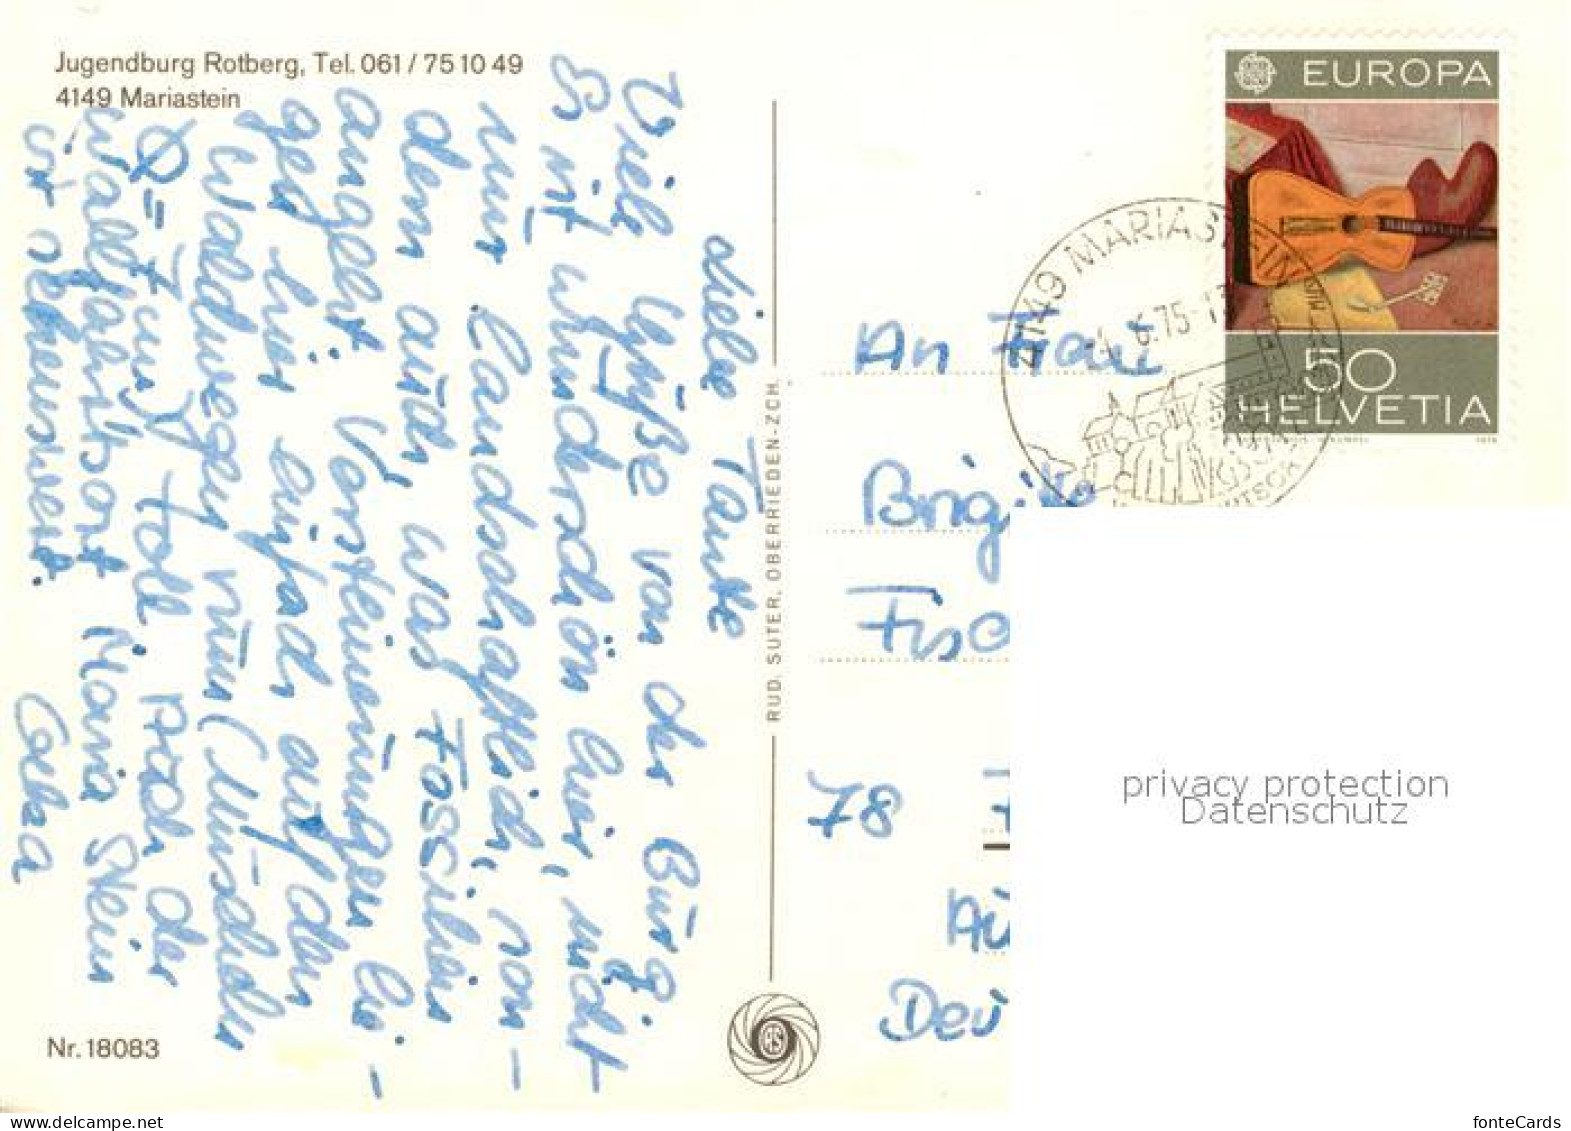 Jugendburg Rotberg, Tel. 061 / 75 10 49
4149 Mariastein
Liebe Tante
Viele Grüße von der Burg.
Es ist wunderschön hier, nicht
nur landschaftlich, son-
dern auch, was Fossilien
angeht. Versteinerungen lie-
gen hier einfach auf den
Waldwegen rum (Muscheln
Ø = 7 cm) Toll. Auch der
Wallfahrtsort Maria Stein
ist sehenswert.
Nr. 18083
RUD. SUTER, OBERRIEDEN-ZCH.
EUROPA
50
HELVETIA
4149 MARIASTEIN
6.75-
An Frau
Brigitte
Fisc
78
Deu
privacy protection
Datenschutz
www.delcampe.net
fonteCards